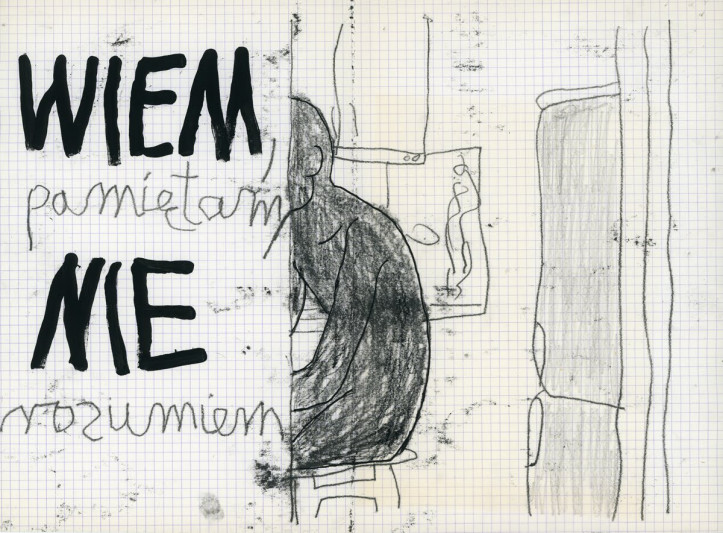 WIEM,
pamiętam
NIE
rozumiem